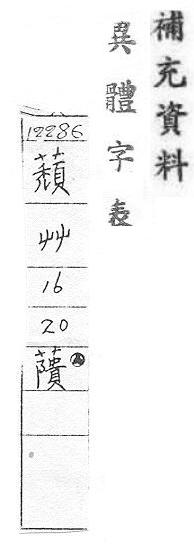 補充資料
異體字表
12286
蘈
艸
16
20
藬